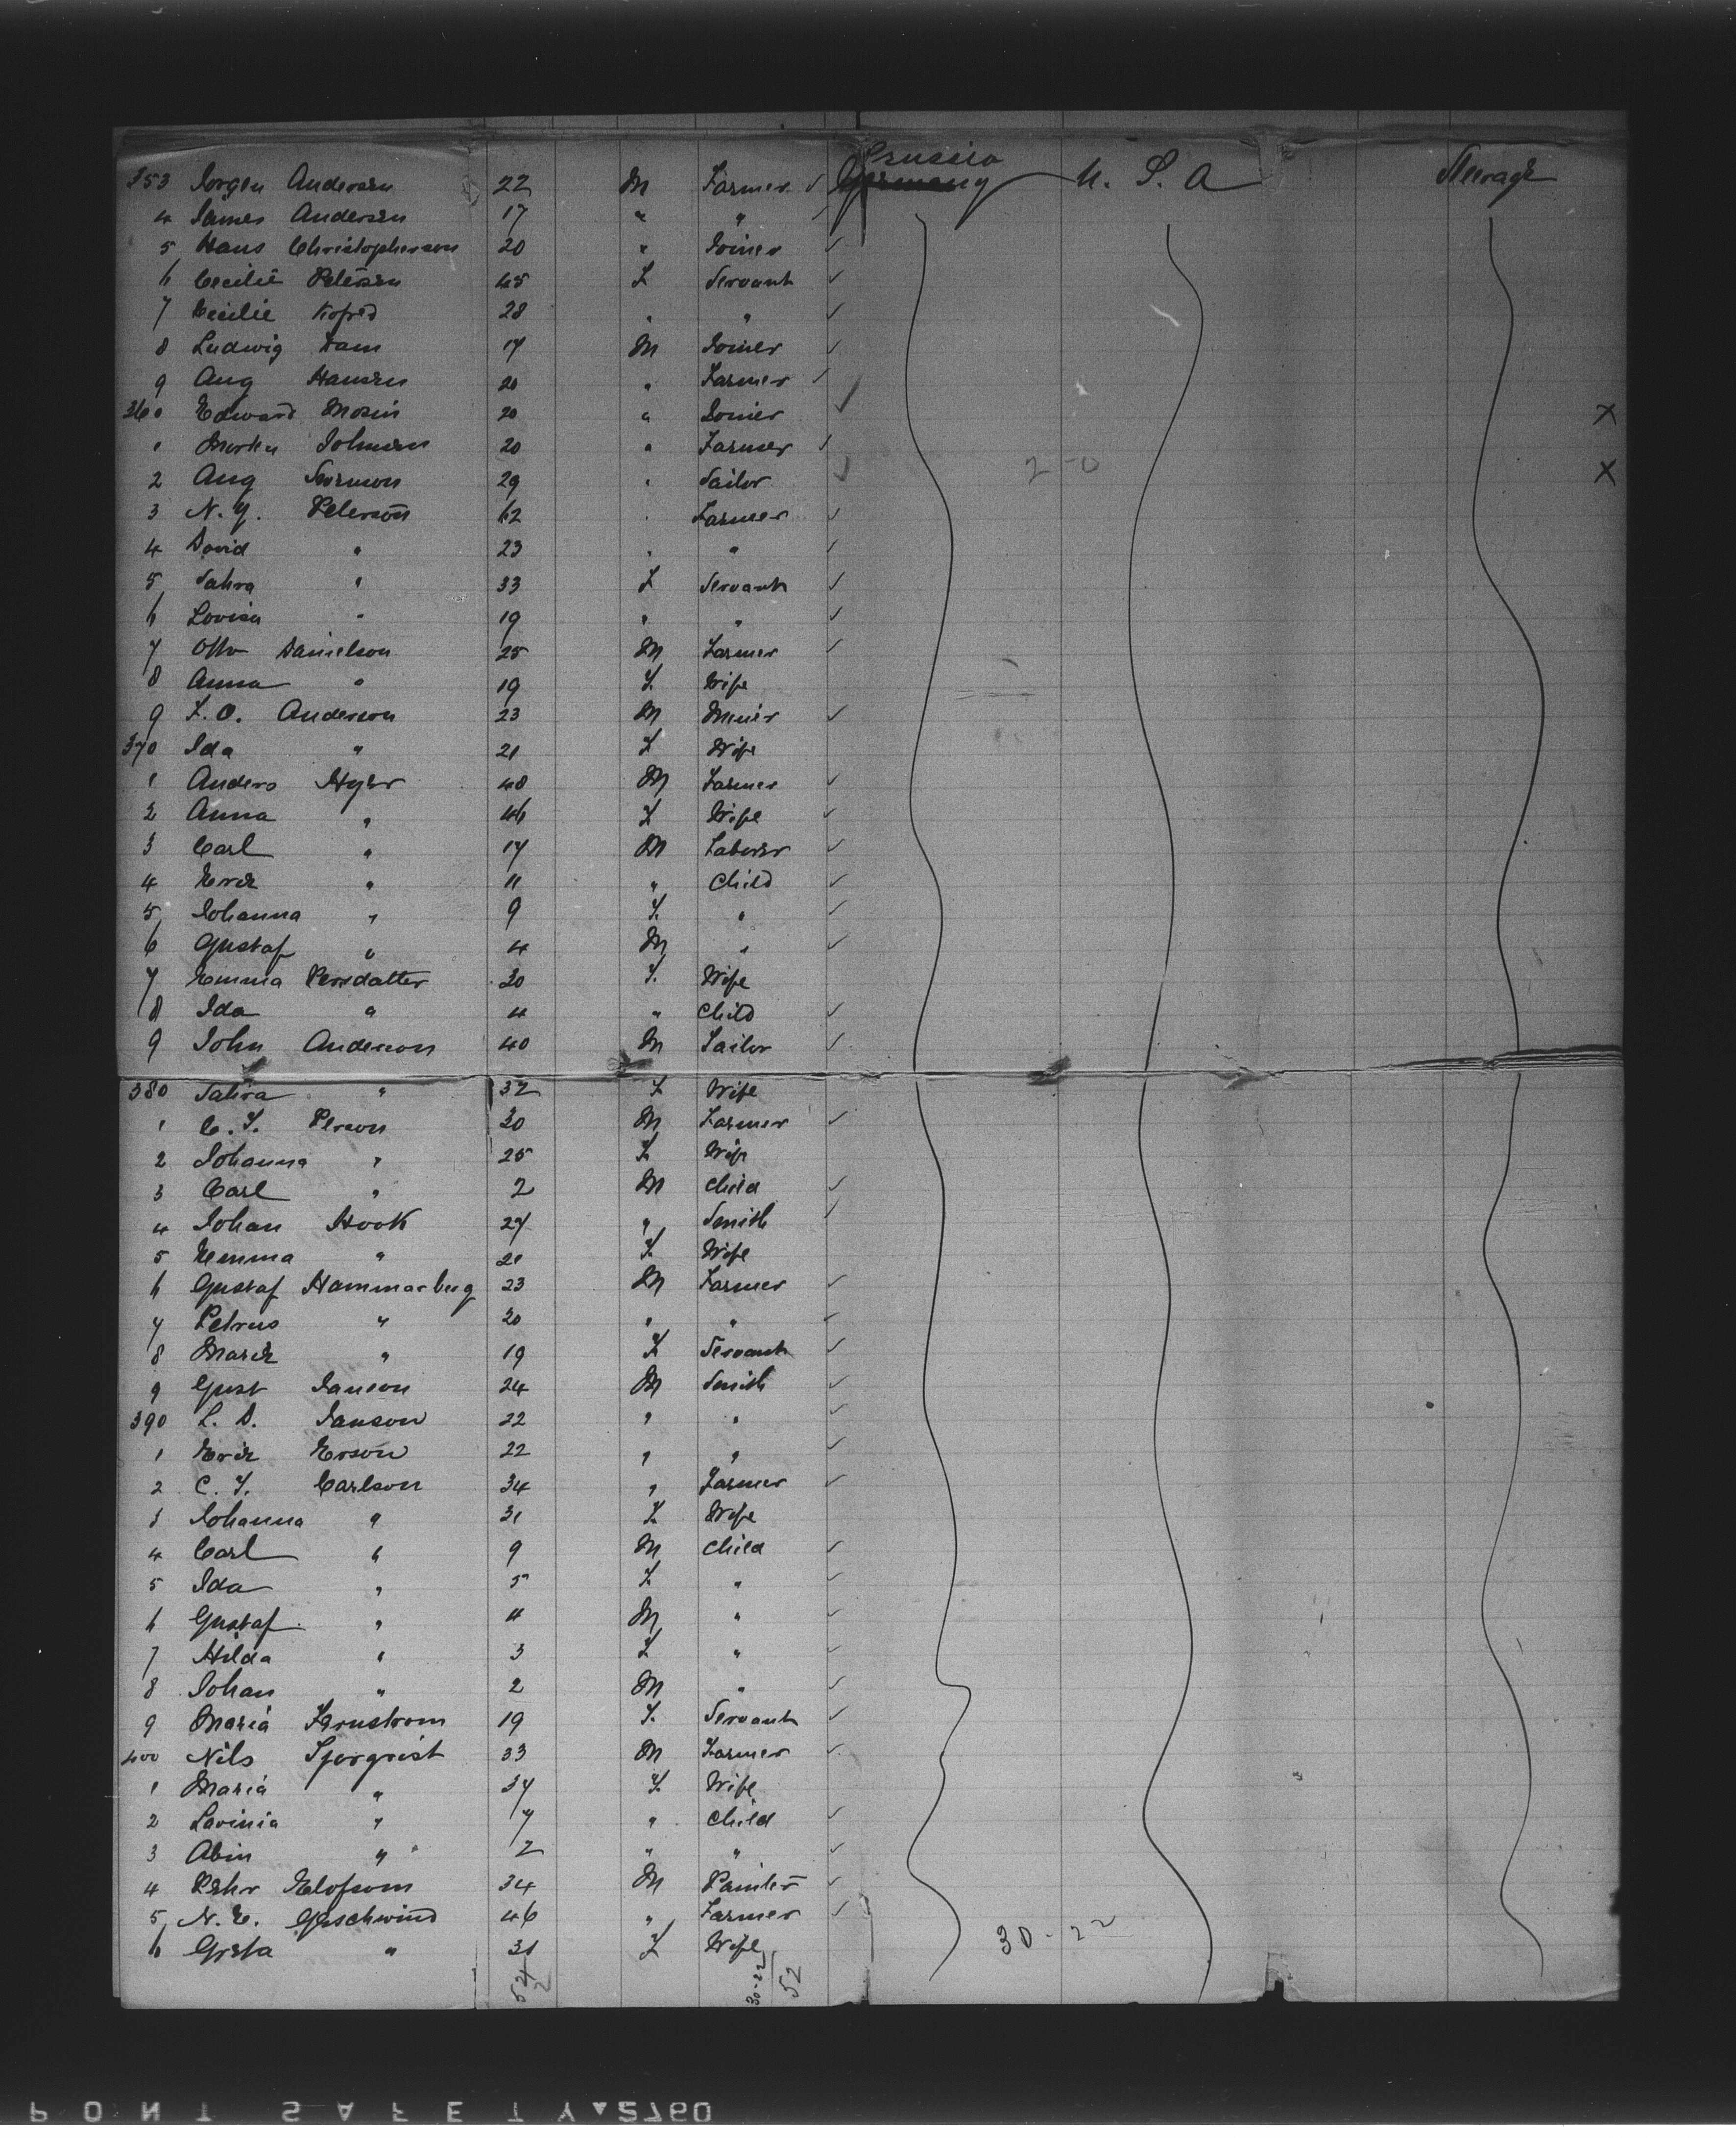 Prussia
353 Jorgen Andersen 22 M Farmer ✓ Germany U. S. A Steerage
4 James Andersen 17 " " ✓
5 Hans Christopherson 20 " Joiner ✓
6 Cecilie Petersen 45 F Servant ✓
7 Cecilie Kofod 28 " " ✓
8 Ludwig Dam 17 M Joiner ✓
9 Aug Hansen 20 " Farmer ✓
360 Edward 20 " Joiner ✓ X
1 Johnsen 20 " Farmer ✓
2 Aug 29 " Sailor ✓ 2-0 X
3 N. Y. Peterson 62 " Farmer ✓
4 David " 23 " " ✓
5 Sahra " 33 F Servant ✓
6 Lovisa " 19 " " ✓
7 Otto Danielson 25 M Farmer ✓
8 Anna " 19 F. Wife
9 F. O. Anderson 23 M Miner ✓
370 Ida " 21 F Wife
1 Anders 48 M Farmer ✓
2 Anna " 46 F Wife ✓
3 Carl " 17 M Laborer ✓
4 Erik " 11 " Child ✓
5 Johanna " 9 F. " ✓
6 Gustaf " 4 M " ✓
7 Emma Persdatter 30 F. Wife
8 Ida " 4 " Child ✓
9 John Anderson 40 M Sailor ✓
380 Sahra " 32 F Wife
1 C. F. Person 30 M Farmer ✓
2 Johanna " 25 F Wife
3 Carl " 2 M Child ✓
4 Johan Hook 27 " Smith ✓
5 Emma " 21 F. Wife
6 Gustaf Hammarberg 23 M Farmer ✓
7 Petrus " 20 " " ✓
8 " 19 F Servant ✓
9 Gust Janson 24 M Smith ✓
390 L. D. Janson 22 " " ✓
1 Erik Erson 22 " " ✓
2 C. F. Carlson 34 " Farmer ✓
3 Johanna " 31 F. Wife
4 Carl " 9 M Child ✓
5 Ida " 5 F. " ✓
6 Gustaf " 4 M " ✓
7 Hilda " 3 F " ✓
8 Johan " 2 M " ✓
9 Maria Fernstrom 19 F. Servant ✓
400 Nils Sjorqvist 33 M Farmer ✓
1 Maria " 37 F. Wife
2 Lavinia " 7 " Child ✓
3 Abin " 2 " " ✓
4 Pehr Elofsom 34 M Painter ✓
5 N. E. Geschwind 46 " Farmer ✓
6 Greta " 31 F Wife 30-22
30-22 52
PONT SAFETY▲2760